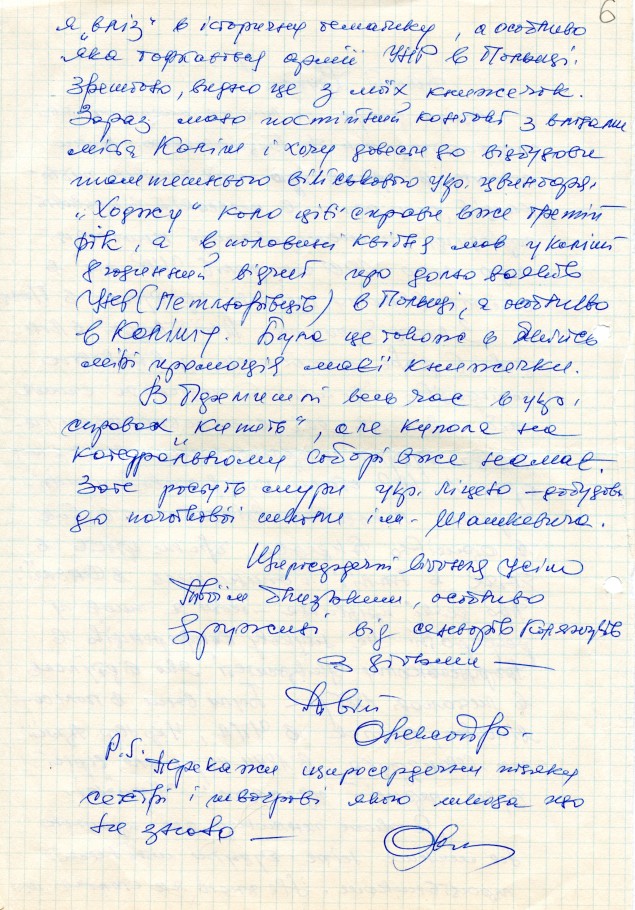 6
я „вліз" в історичну тематику, а особливо
яка торкається армії УНР в Польщі.
Зрештою, видно це з моїх книжечок.
Зараз маю постійний контакт з владами
міста Каліш і хочу довести до відбудови
тамтешнього військового укр. цвинтаря.
„Ходжу" коло цієї справи вже третій
рік, а в половині квітня мав у Каліші
годинний відчит про долю вояків
УНР (Петлюрівців) в Польщі, а особливо
в Калішу. Була це також в якійсь
мірі промоція моєї книжечки.
В Перемишлі весь час в укр.
справах „кипить", але купола на
катедральному соборі вже немає.
Зате ростуть мури укр. ліцею – добудова
до початкової школи ім. Шашкевича.
Щиросердечні вітання усім
Твоїм близьким, особливо
дружині від сеньорів Колянчуків
з дітьми —
Твій
Олександр.
P.S. Перекажи щиросердечну подяку
сестрі і швагрові якого шкода що
не знаю —